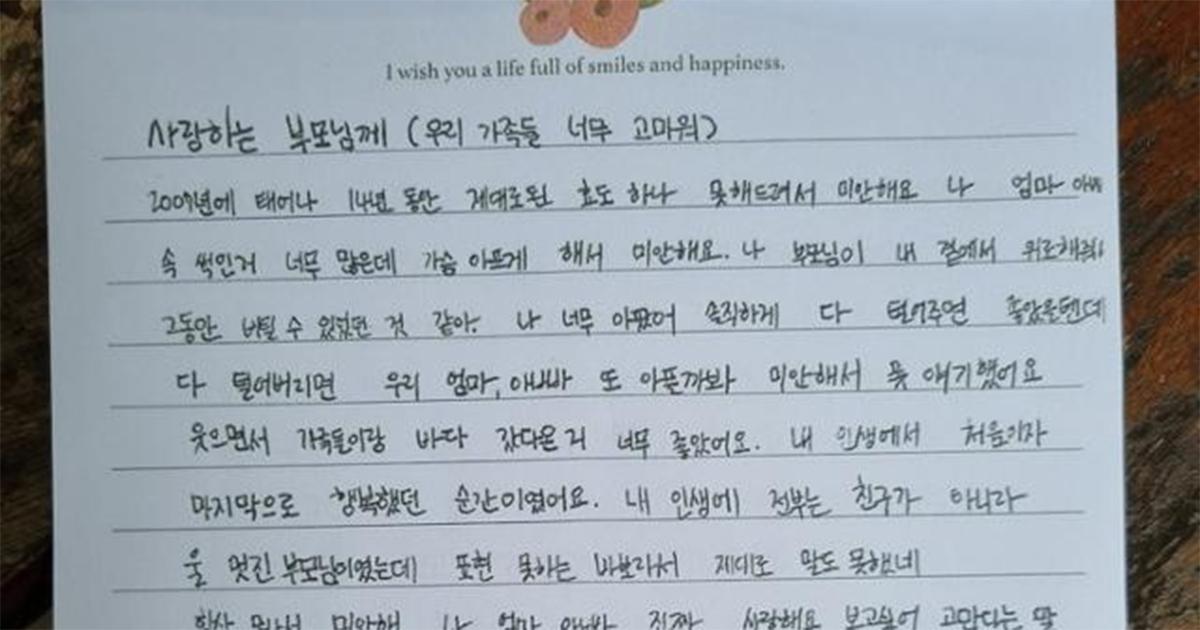 I wish you a life full of smiles and happiness.
사랑하는 부모님께 (우리 가족들 너무 고마워)
2007년에 태어나 14년 동안 제대로된 효도 하나 못해드려서 미안해요 나 엄마 아빠
속 썩인거 너무 많은데 가슴 아프게 해서 미안해요. 나 부모님이 내 곁에서 위로해줘서
그동안 버틸 수 있었던 것 같아. 나 너무 아팠어 솔직하게 다 털어주면 좋았을텐데
다 털어버리면 우리 엄마, 아빠 또 아픈까봐 미안해서 못 얘기했어요
웃으면서 가족들이랑 바다 갔다온 거 너무 좋았어요. 내 인생에서 처음이자
마지막으로 행복했던 순간이였어요. 내 인생에 전부는 친구가 아니라
울 멋진 부모님이였는데 표현 못하는 바보라서 제대로 말도 못했네
미안해 나 엄마 아빠 진짜 사랑해요 보고싶어